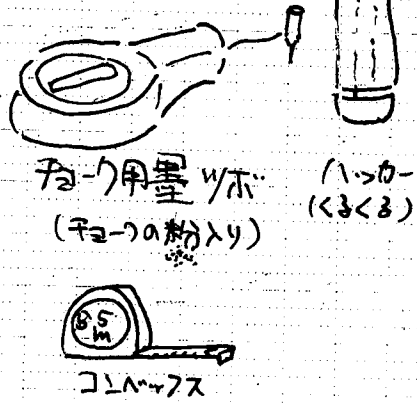 チョーク用墨ツボ
(チョークの粉入り)
ハッカー
(くるくる)
5.5
m
コンベックス